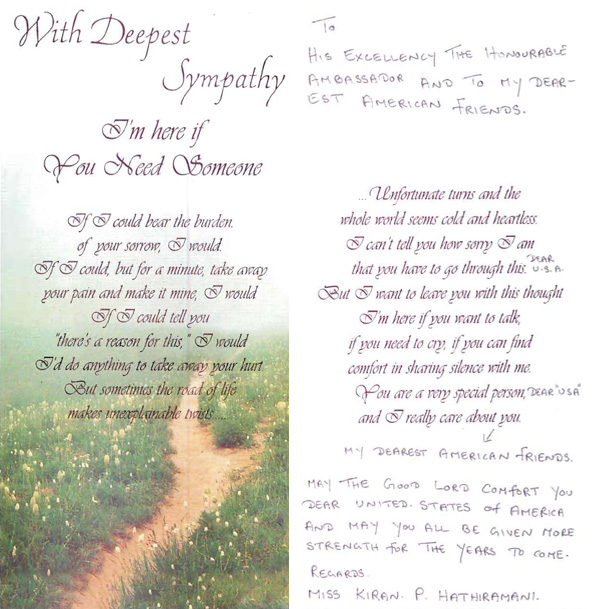 With Deepest
Sympathy
I'm here if
You Need Someone
If I could bear the burden.
of your sorrow, I would.
If I could, but for a minute, take away
your pain and make it mine, I would
If I could tell you
"there's a reason for this," I would
I'd do anything to take away your hurt
But sometimes the road of life
makes unexplainable twists.....
To
His Excellency The Honourable
Ambassador and to my dear-
est American friends.
...Unfortunate turns and the
whole world seems cold and heartless.
I can't tell you how sorry I am
that you have to go through this. Dear U.S.A.
But I want to leave you with this thought
I'm here if you want to talk,
if you need to cry, if you can find
comfort in sharing silence with me.
You are a very special person, Dear "USA"
and I really care about you.
My dearest American friends.
May the Good Lord comfort you
Dear United. States of America
and may you all be given more
strength for the years to come.
Regards.
Miss Kiran. P. Hathiramani.